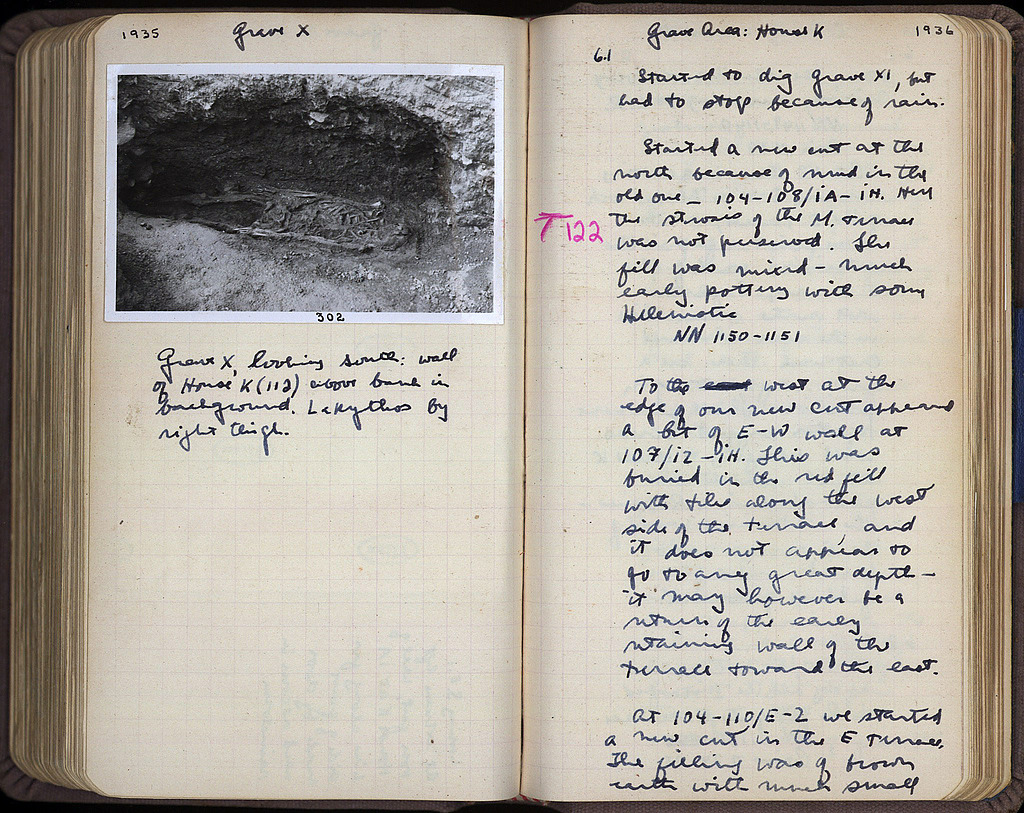 1935
Grave X
302
Grave X, looking south: wall
of House K (112) above bank in
background. Lekythos by
right thigh.
Grave Area: House K
1936
6.1
Started to dig Grave XI, but
had to stop because of rain.
Started a new cut at the
north because of mud in the
old one - 104-108/ - . Here
T 122
the strosis of the M. terrace
was not preserved. The
fill was mixed - much
early pottery with some
Hellenistic
NN 1150-1151
To the west at the
edge of our new cut appeared
a bit of E-W wall at
107/ - . This was
buried in the red fill
with tiles along the west
side of the terrace, and
it does not appear to
go to any great depth -
it may however be a
return of the early
retaining wall of the
terrace toward the east.
At 104-110/E-Z we started
a new cut in the E terrace.
The filling was of brown
earth with much small